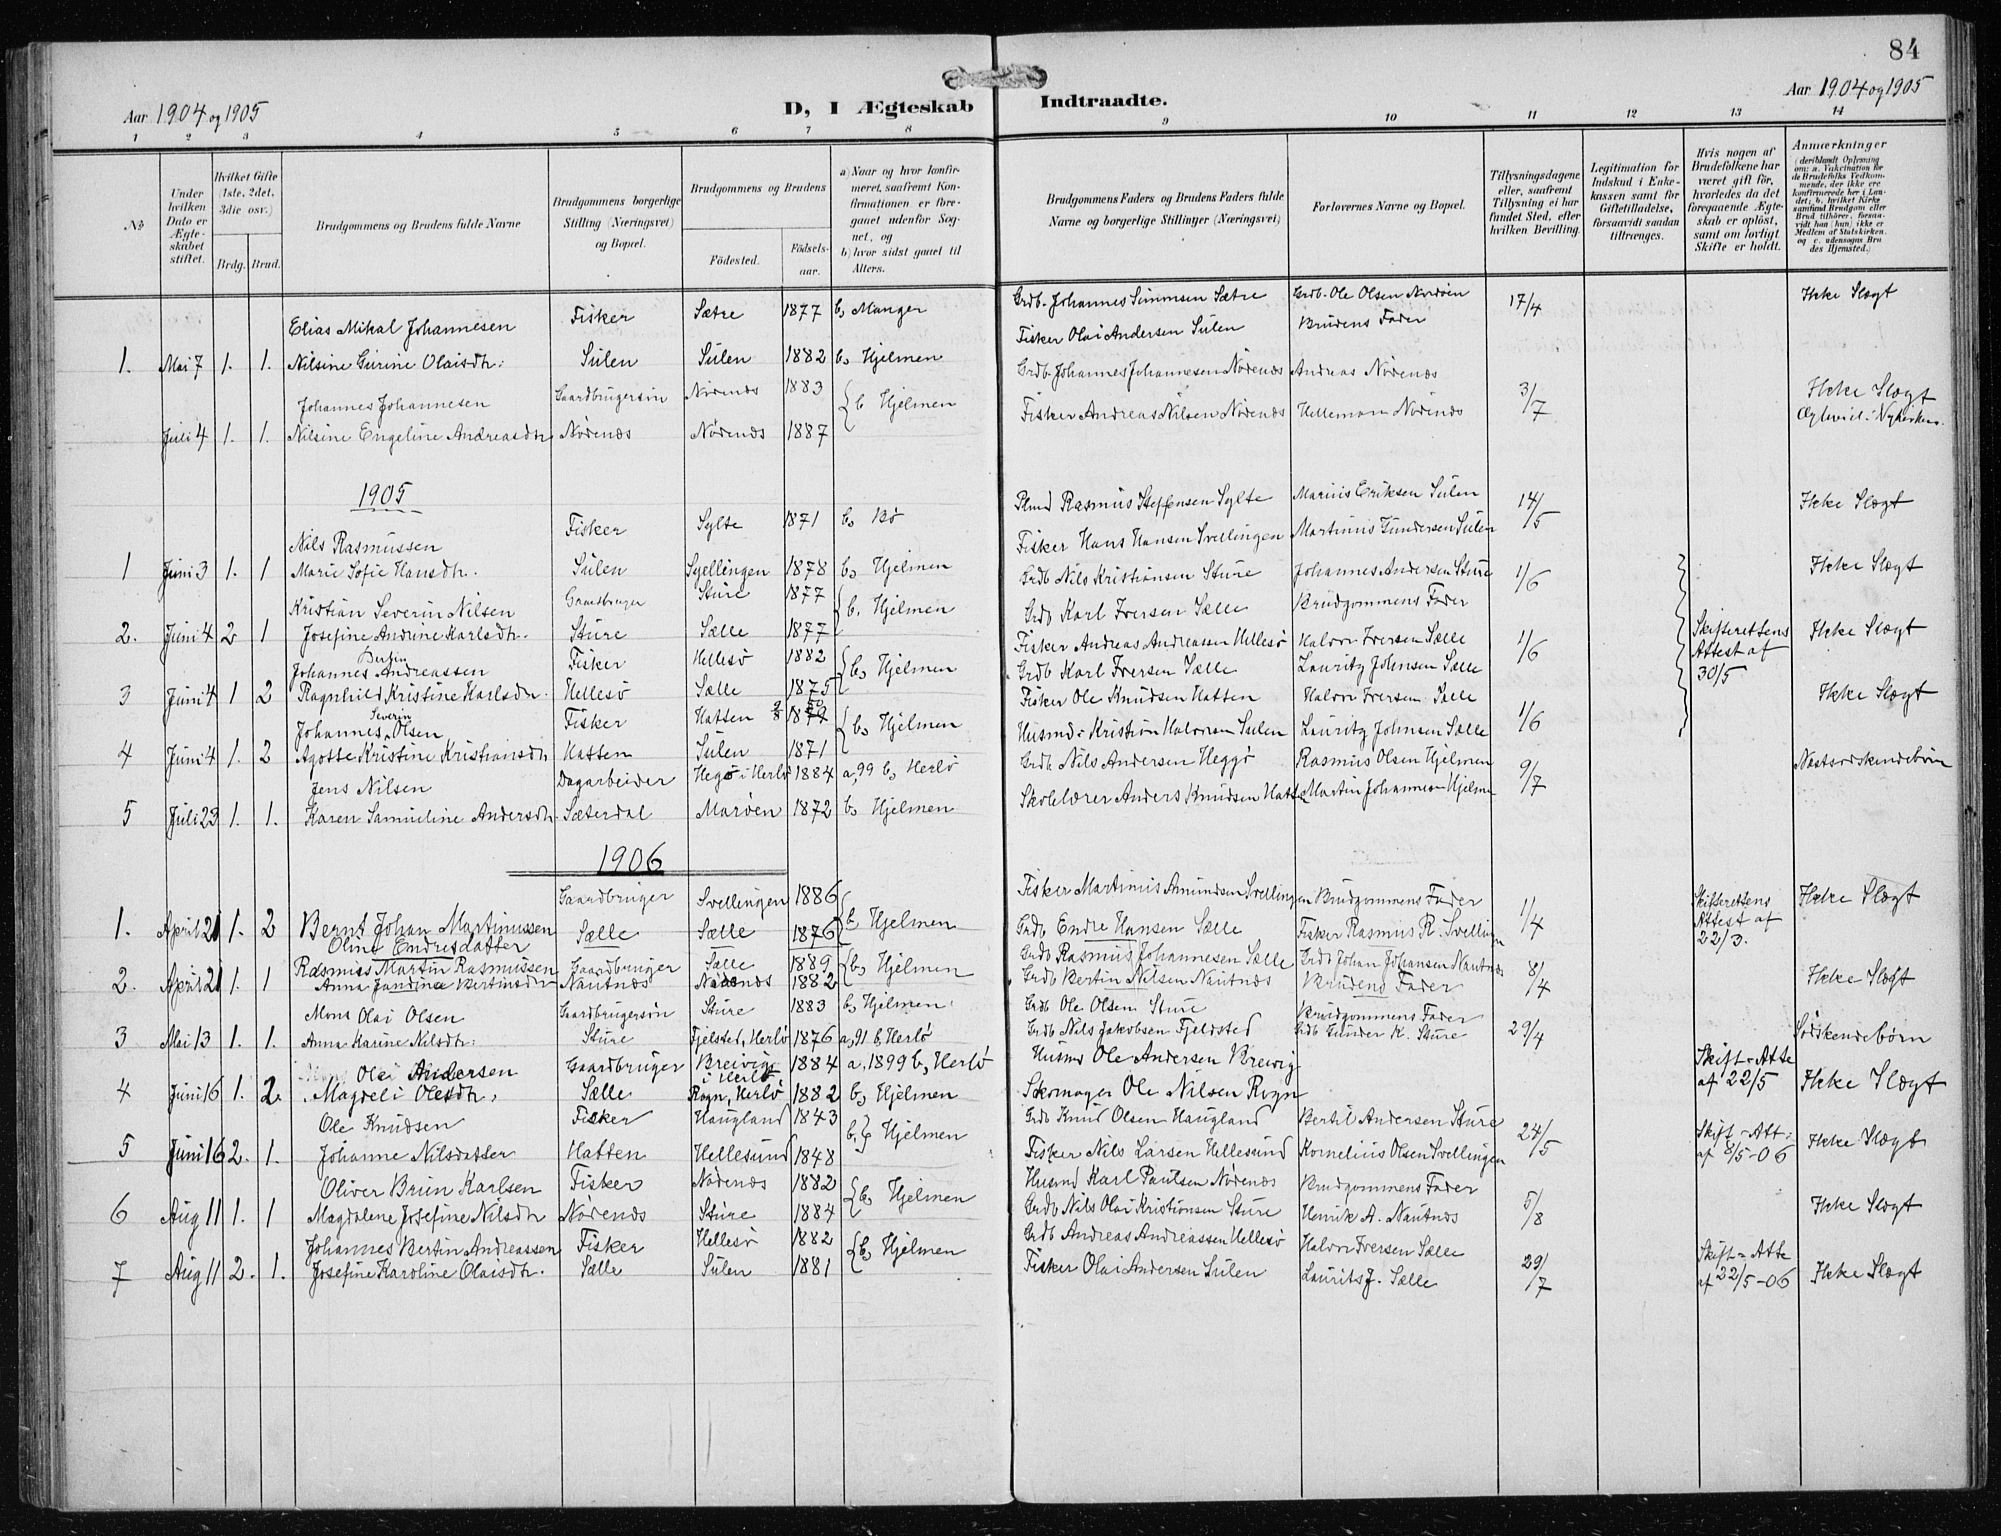 84
Aar 1904 og 1905 D, I Ægteskab Indtraadte. Aar 1904 og 1905
1 2 3 4 5 6 7 8 9 10 11 12 13 14
No
Under hvilken Dato er Ægteskabet stiftet.
Hvilket Gifte (1ste, 2det, 3die osv.)
Brdg. Brud.
Brudgommens og Brudens fulde Navne
Brudgommens borgerlige Stilling (Næringsvei) og Bopæl.
Brudgommens og Brudens
Födested. Födselsaar.
a) Naar og hvor konfirmeret, saafremt Konfirmationen er foregaaet udenfor Sognet, og
b) hvor sidst gaaet til Alters.
Brudgommens Faders og Brudens Faders fulde Navne og borgerlige Stillinger (Næringsvei)
Forlovernes Navne og Bopæl.
Tillysningsdagene eller, saafremt Tillysning ei har fundet Sted, efter hvilken Bevilling.
Legitimation for Indskud i Enkekassen samt for Giftetilladelse, forsaavidt saadan tiltrænges.
Hvis nogen af Brudefolkene har været gift för, hvorledes da det foregaaende Ægteskab er oplöst, samt om lovligt Skifte er holdt.
Anmærkninger (deriblandt Oplysning om: a. Vakcination for de Brudefolks Vedkommende, der ikke ere konfirmerede her i Landet; b. hvilket Kirkesamfund Brudgom eller Brud tilhörer, forsaavidt han (hun) ikke er Medlem af Statskirken, og c. udensogns Brudes Hjemsted.)
Elias Mikal Johannesen Fisker Sætre 1877 b, Manger Grdb. Johannes Simonsen Sætre Grdb. Ole Olsen Nordöen 17/4 Ikke Slægt
1. Mai 7 1. 1. Nilsine Gurine Olaisdtr. Sulen Sulen 1882 b, Hjelmen Fisker Olai Andersen Sulen Brudens Fader
Johannes Johannesen Gaardbrugersön Nödenæs 1883 b Hjelmen Grdb. Johannes Johannesen Nödenæs Andreas Nödenæs 3/7 Ikke Slægt
Juli 4 1. 1. Nilsine Engeline Andreasdtr. Nödenæs Nödenæs 1887 Fisker Andreas Nilsen Nödenæs Hellemann Nödenæs
1905
Nils Rasmussen Fisker Sylte 1871 b, Bö Rasmus Steffensen Sylte Marius Eriksen Sulen 14/5 Ikke Slægt
1 Juni 3 1. 1 Marie Sofie Hansdtr. Sulen Svellingen 1878 b, Hjelmen Fisker Hans Hansen Svellingen Martinus Gundersen Sulen
Kristian Severin Nilsen Gaardbruger Sture 1877 b, Hjelmen Grdb Nils Kristiansen Sture Johannes Andersen Sture 1/6 Ikke Slægt
2. Juni 4 2 1 Josefine Andrine Karlsdtr. Sture Sælle 1877 Grdb Karl Iversen Sælle Brudgommens Fader
Johannes Bertin Andreassen Fisker Hellesö 1882 b, Hjelmen Fisker Andreas Andreassen Hellesö Halvor Iversen Sælle 1/6 Skifterettens Attest af 30/5 Ikke Slægt
3 Juni 4 1 2 Ragnhild Kristine Karlsdtr. Hellesö Sælle 1875 Grdb Karl Iversen Sælle Lauritz Johnsen Sælle
Johannes Severin Olsen Fisker Hatten 1879 b, Hjelmen Fisker Ole Knudsen Hatten Halvor Iversen Sælle 1/6 Ikke Slægt
4 Juni 4 1. 2 Agotte Kristine Kristiansdtr Hatten Sulen 1871 Husmd. Kristian Halvorsen Sulen Lauritz Johnsen Sælle
Jens Nilsen Dagarbeider Hegö i Herlö 1884 a, 99 b, Herlö Grdb. Nils Andersen Heggö Rasmus Olsen Hjelmen 9/7 Næstsödskendebörn
5 Juli 23 1. 1. Karen Samueline Andersdtr. Sæterdal Maröen 1872 b, Hjelmen Skolelærer Anders Knudsen Hatten Martin Johannesen Hjelme
1906
Gaardbruger Svellingen 1886 b, Hjelmen Fisker Martinus Amundsen Svellingen Brudgommens Fader 1/4 Skifterettens Attest af 22/3. Ikke Slægt
1. April 21 1. 2 Bernt Johan Martinussen Sælle Sælle 1876 Grdb Endre Hansen Sælle Fisker Rasmus R. Svellingen
Oline Endresdatter
Rasmus Martin Rasmussen Gaardbruger Sælle 1889 b, Hjelmen Grdb Rasmus Johannesen Sælle Grdb Johan Johansen Nautnæs 8/4 Ikke Slægt
2. April 21 1. 1 Anna Jandine Bertinsdtr Nautnæs 1882 Grdb Bertin Nilsen Nautnæs Brudens Fader
Mons Olai Olsen Gaardbrugersön Sture 1883 b, Hjelmen Grdb Ole Olsen Sture Brudgommens Fader
3 Mai 13 1. 1. Anna Karine Nilsdtr. Sture Fjelsted, Herlö 1876 a, 91 b, Herlö Grdb. Nils Jakobsen Fjeldsted Grdb Gunder K. Sture 29/4 Södskendebörn
Olai Andersen Gaardbruger Breivig i Herlö 1884 a, 1899 b, Herlö Husmd Ole Andersen Brevig Skift-Atte af 22/5 Ikke Slægt
4 Juni 16 1. 2. Magdeli Olesdtr. Sælle Rogn, Herlö 1882 b, Hjelmen Skomager Ole Nilsen Rogn
Ole Knudsen Fisker Haugland 1843 b, Hjelmen Grdb Knud Olsen Haugland Bertil Andersen Sture 24/5 Skift-Att: af 8/5-06 Ikke Slægt
5 Juni 16 2. 1. Johanne Nilsdatter Hatten Hellesund 1848 Fisker Nils Larsen Hellesund Kornelius Olsen Svellingen
Oliver Brun Karlsen Fisker Nödenæs 1882 b, Hjelmen Husmd Karl Paulsen Nödenæs Brudgommens Fader 5/8 Ikke Slægt
6 Aug 11 1. 1 Magdalene Josefine Nilsdtr Nödenæs Sture 1884 Grdb Nils Olai Kristiansen Sture Henrik A. Nautnæs
Johannes Bertin Andreassen Fisker Hellesö 1882 b, Hjelmen Grdb Andreas Andreassen Hellesö Halvor Iversen Sælle 29/7 Skift-Atte af 22/5-06 Ikke Slægt
7 Aug 11 2. 1. Josefine Karoline Olaisdtr. Sælle Sulen 1881 Fisker Olai Andersen Sulen Laurits J. Sælle